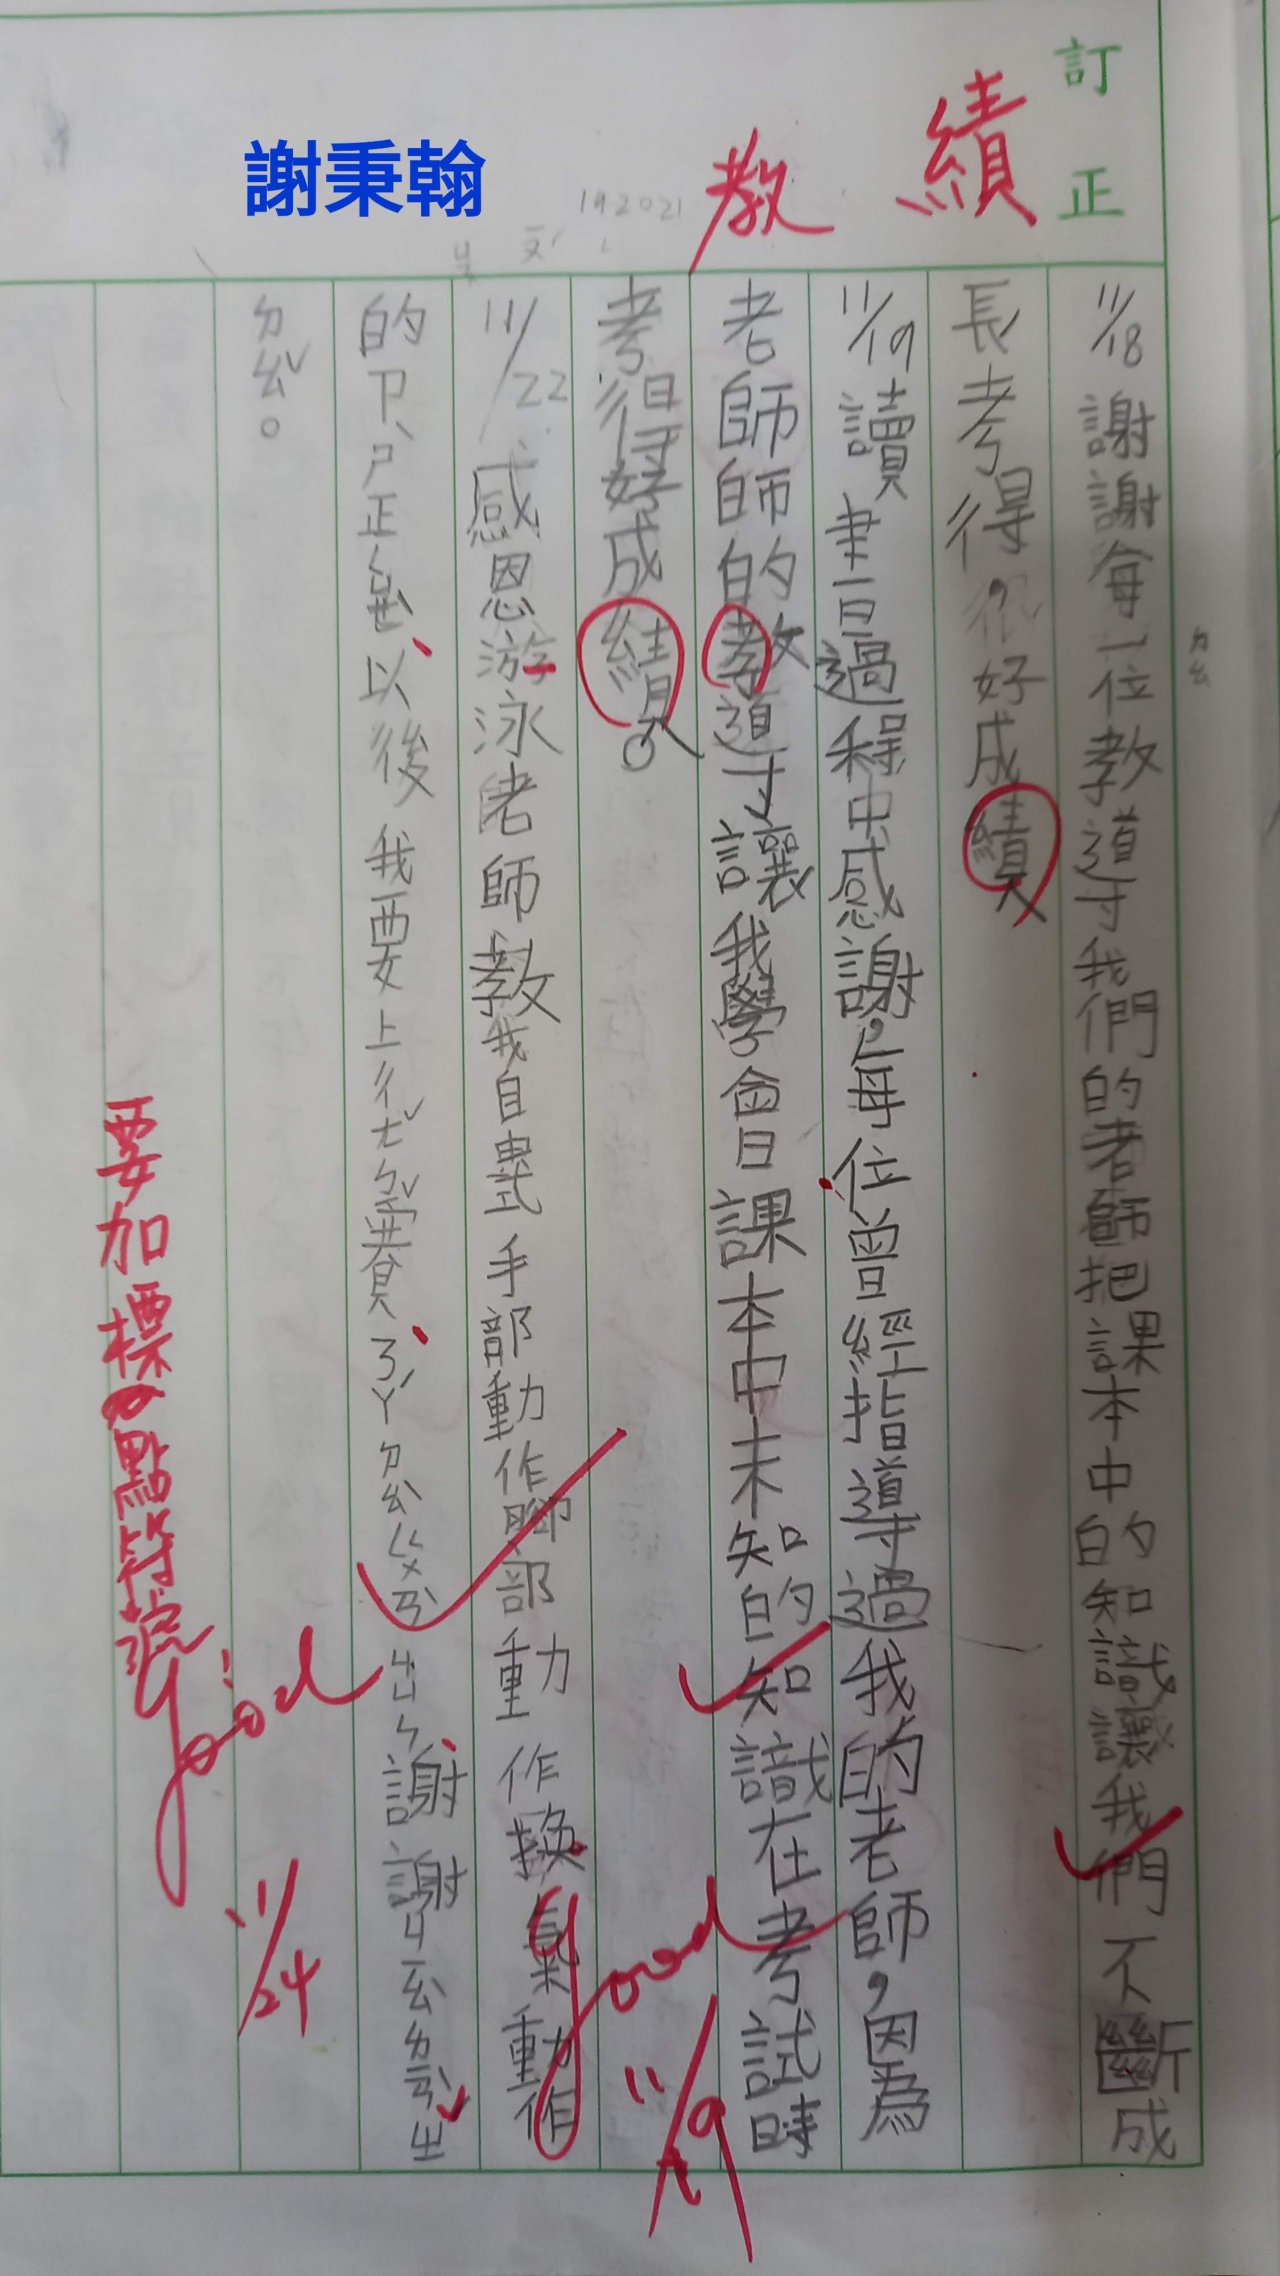 訂正
績
教
謝秉翰
192021
11/18謝謝每一位教導我們的老師把課本中的知識讓我們不斷成
ㄉㄠ
長考得很好成績
11/19讀書過程中感謝,每一位曾經指導過我的老師,因為
老師師的教導讓我學會課本中未知的知識在考試時
考得好成績。
11/22感恩游泳老師教我自由式手部動作腳部動作換氣動作
的ㄗ 正 以後我要上 賽 謝謝
ㄉㄠˇ。
要加標點符號!
good
11/24
good
11/19